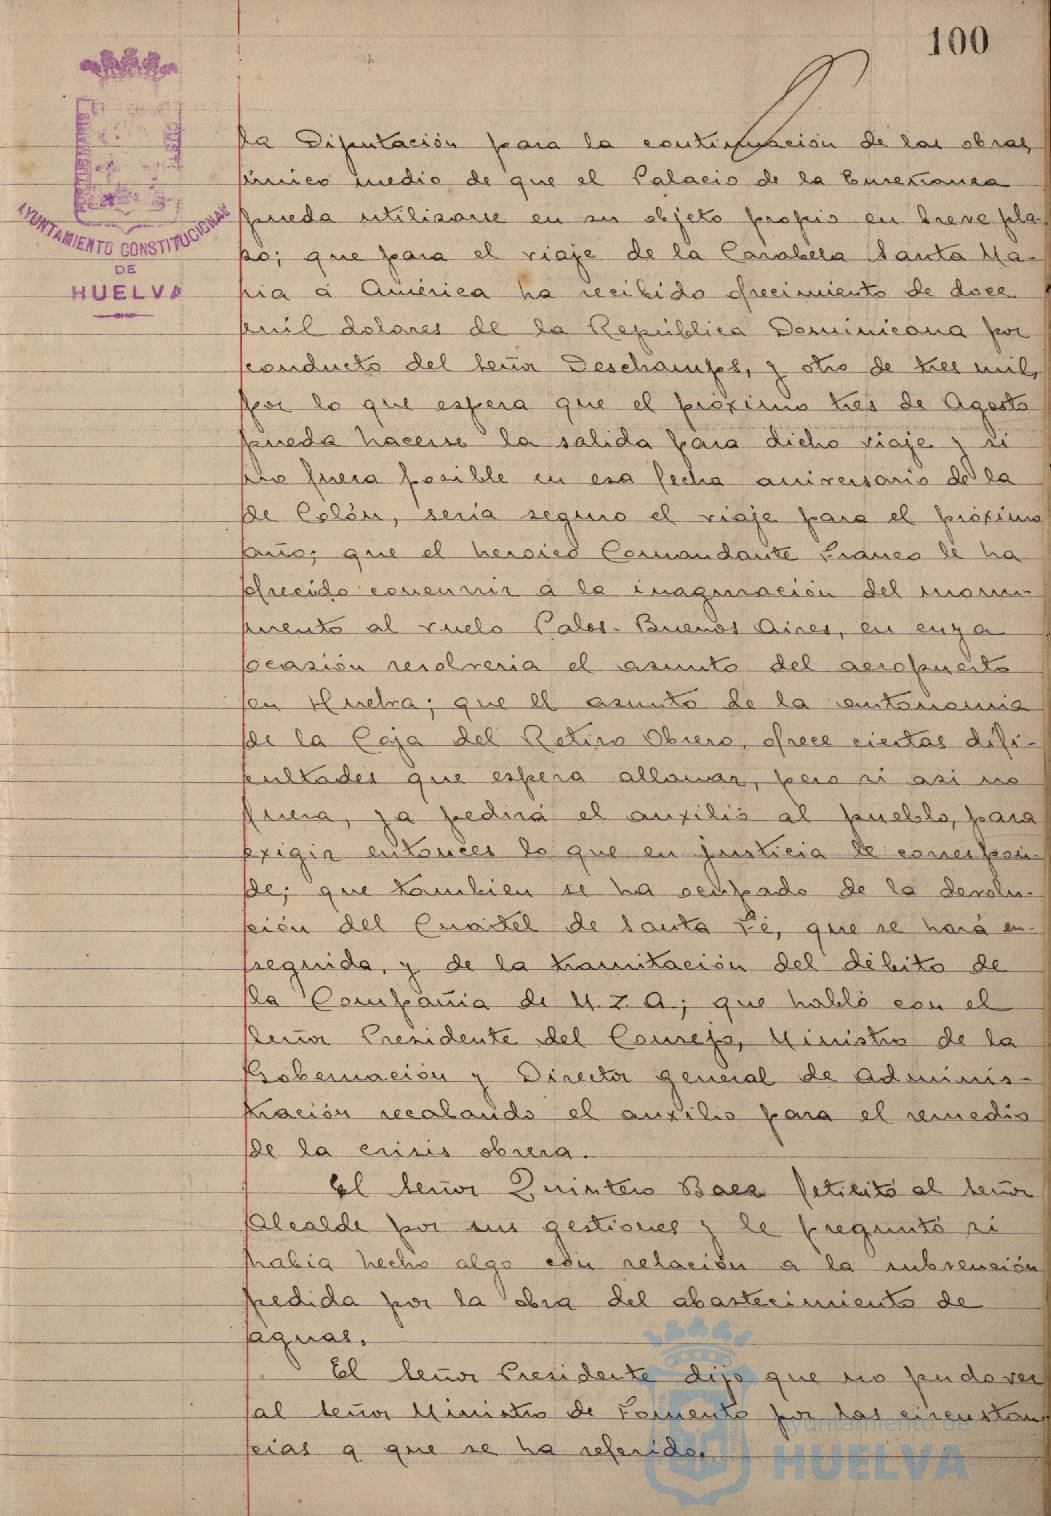 100
PORTUS MARIS
CUST
AYUNTAMIENTO CONSTITUCIONAL
DE
HUELVA
la Diputación para la continuación de las obras,
único medio de que el Palacio de la Enseñanza
pueda utilizarse en su objeto propio en breve pla-
zo; que para el viaje de la Carabela Santa Ma-
ria á América ha recibido ofrecimiento de doce
mil dolares de la República Dominicana por
conducto del Señor Deschamps, y otro de tres mil,
por lo que espera que el próximo tres de Agosto
pueda hacerse la salida para dicho viaje y si
no fuera posible en esa fecha aniversario de la
de Colón, sería seguro el viaje para el próximo
año; que el heroico Comandante Franco le ha
ofrecido concurrir a la inaguración del monu-
mento al vuelo Palos-Buenos Aires, en cuya
ocasión resolveria el asunto del aeropuerto
en Huelva; que el asunto de la autonomia
de la Caja del Retiro Obrero, ofrece ciertas difi-
cultades que espera allanar, pero si asi no
fuera, ya pedirá el auxilio al pueblo, para
exigir entonces lo que en justicia le correspon-
de; que tambien se ha ocupado de la devolu-
ción del Cuartel de Santa Fé, que se hará en-
seguida, y de la tramitación del débito de
la Compañia de M. Z. A; que habló con el
Señor Presidente del Consejo, Ministro de la
Gobernación y Director general de Adminis-
tración recabando el auxilio para el remedio
de la crisis obrera.
El Señor Quintero Baez felicitó al Señor
Alcalde por sus gestiones y le preguntó si
habia hecho algo con relación a la subvención
pedida por la obra del abastecimiento de
aguas.
El Señor Presidente dijo que no pudo ver
al Señor Ministro de Fomento por las circustan-
cias a que se ha referido.
Ayuntamiento de
HUELVA